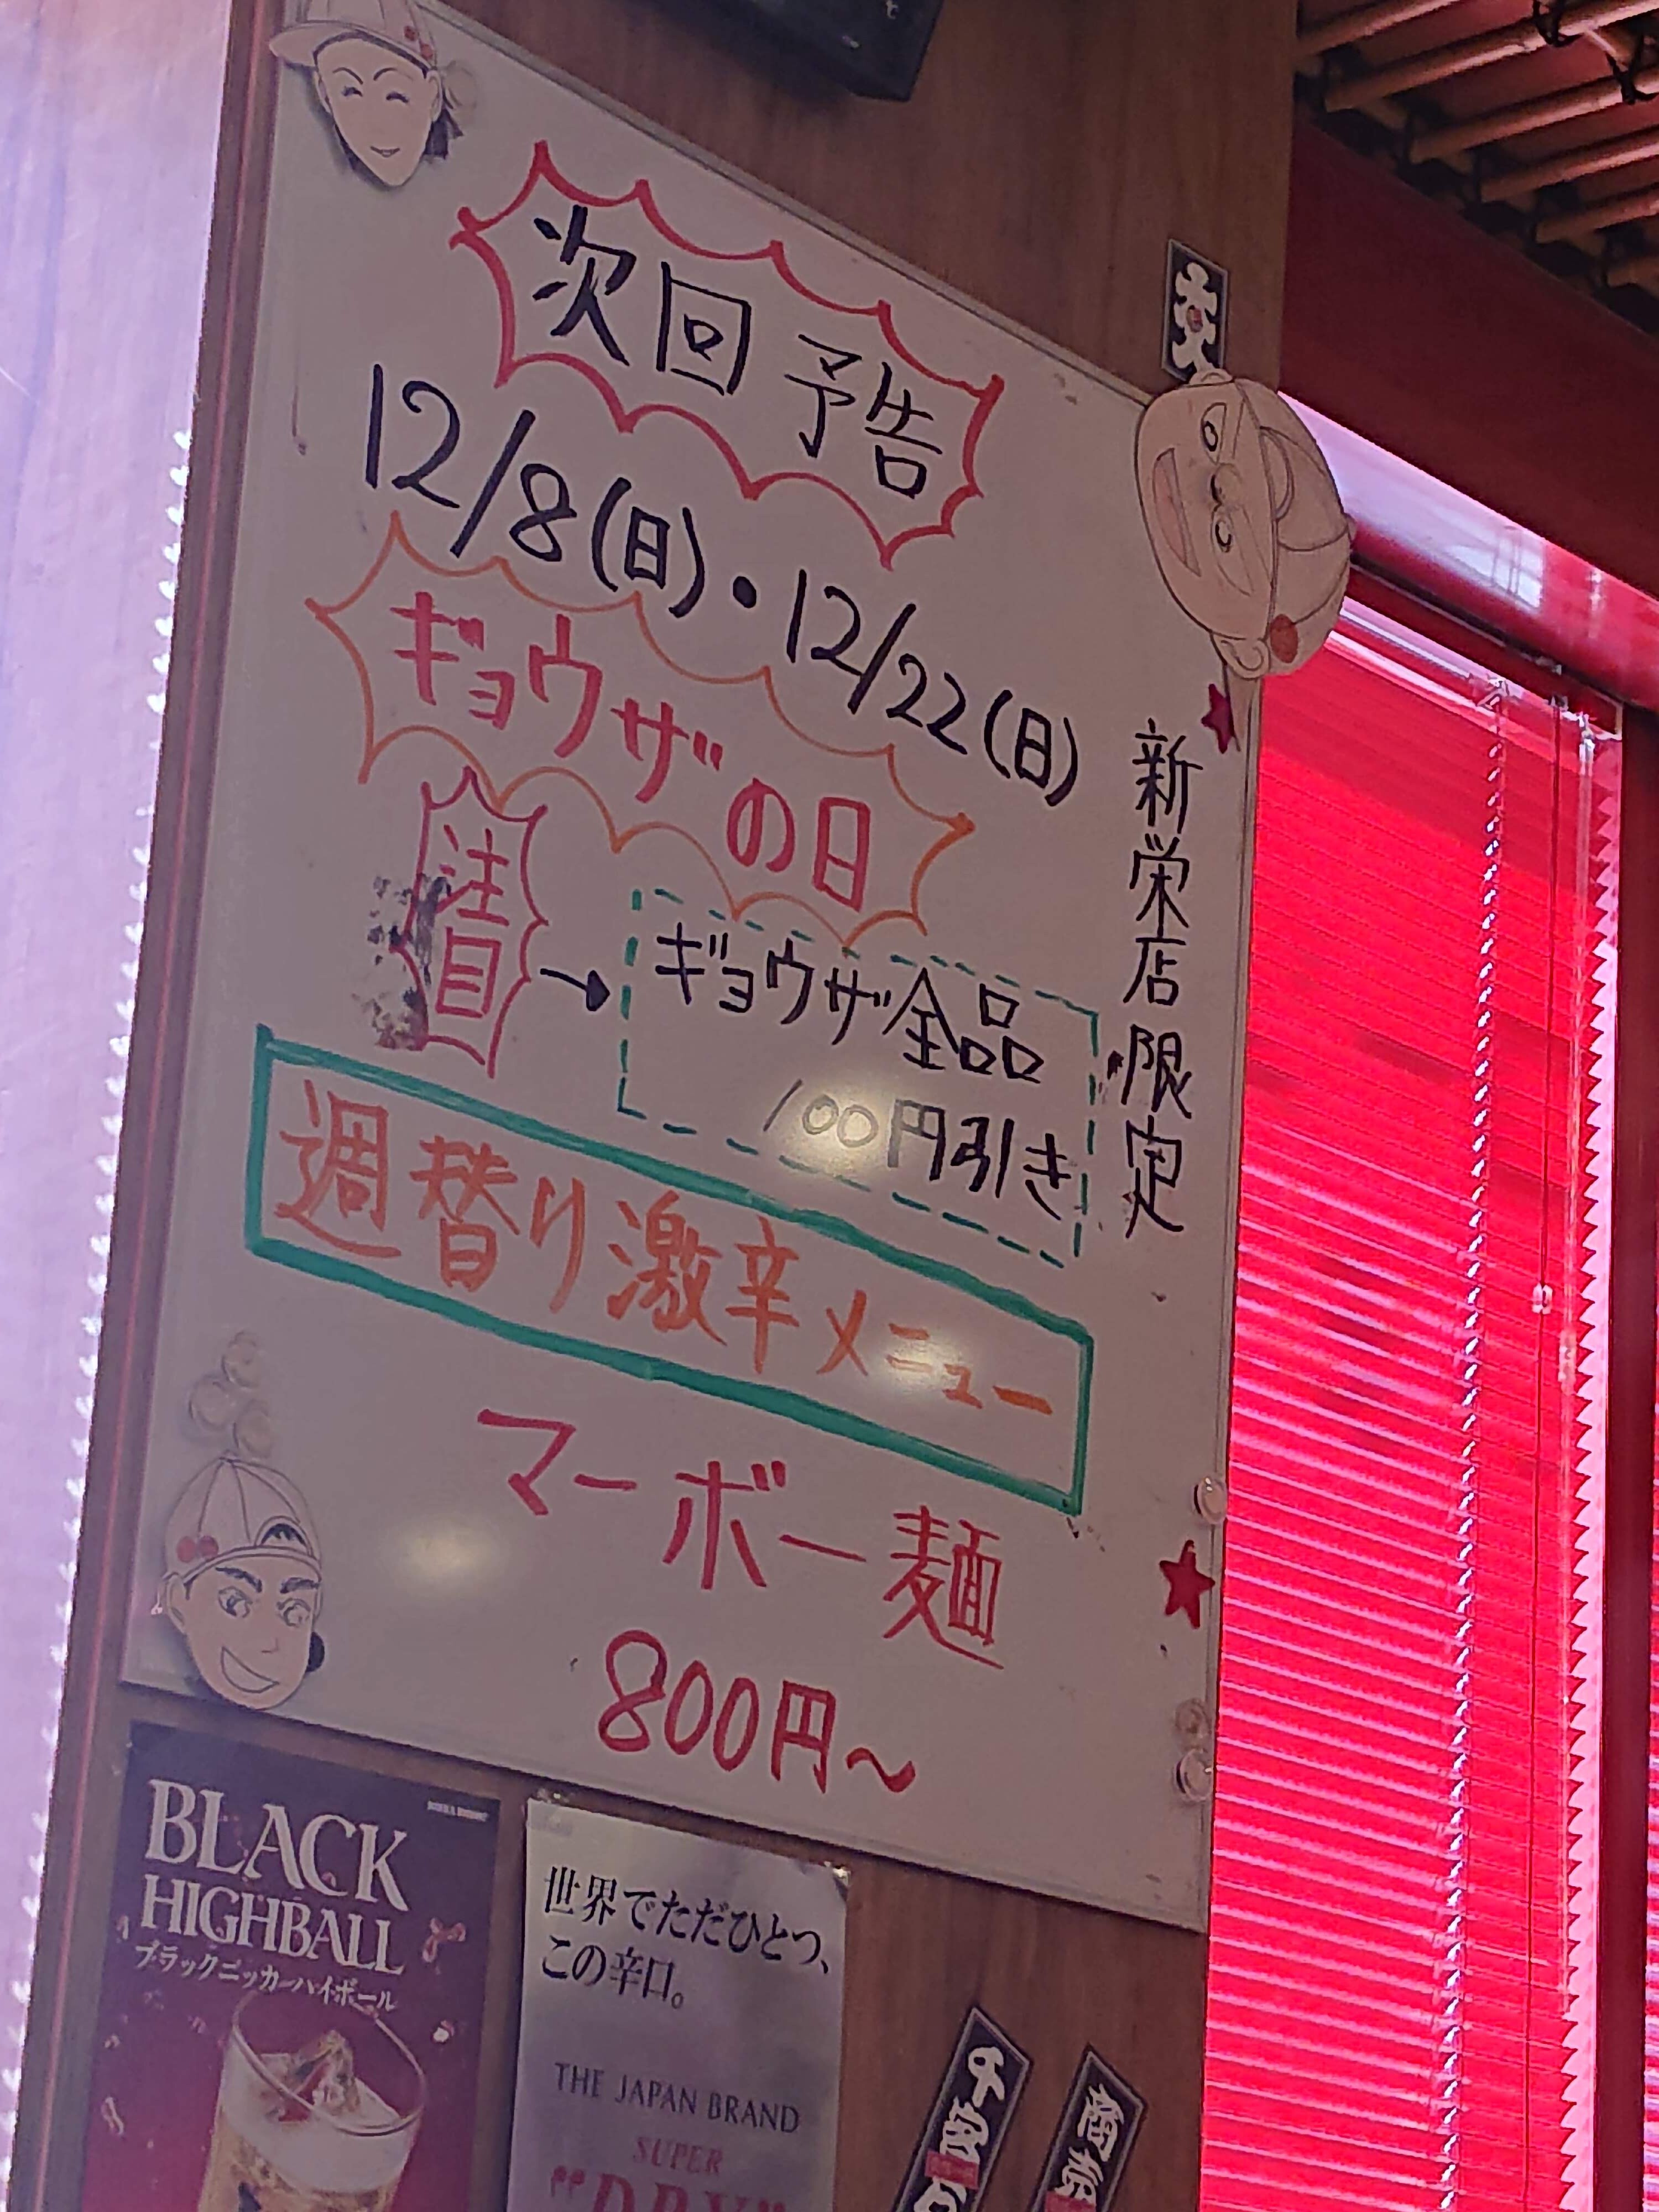 次回予告
12/8(日)・12/22(日)
ギョウザの日
注目
→ ギョウザ全品
100円引き
新栄店限定
週替り激辛メニュー
マーボー麺
800円〜
BLACK
HIGHBALL
ブラックニッカハイボール
世界でただひとつ、
この辛口。
THE JAPAN BRAND
SUPER
"DRY"